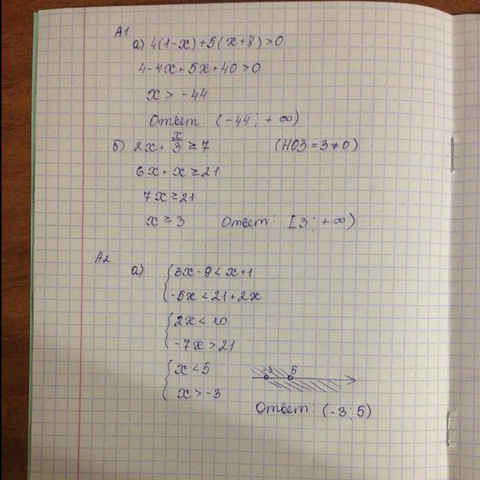 А1
а) 4(1-x)+5(x+8)>0
4-4x+5x+40>0
x > -44
Ответ: (-44; +∞)
б) 2x + x/3 ≥ 7 (НОЗ = 3 ≠ 0)
6x + x ≥ 21
7x ≥ 21
x ≥ 3 Ответ: [3; +∞)
А2
а) { 3x-9 < x+1
-5x < 21+2x
{ 2x < 10
-7x > 21
{ x < 5
x > -3
-3 5
Ответ: (-3; 5)